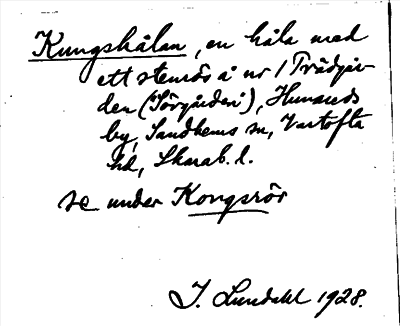 Kungshålan, en håla med
ett stenrös å nr 1 Trädgår-
den (Sörgården), Hunareds
by, Sandhems sn, Vartofta
hd, Skarab. l.
se under Kongsrör
J. Lundahl 1928.